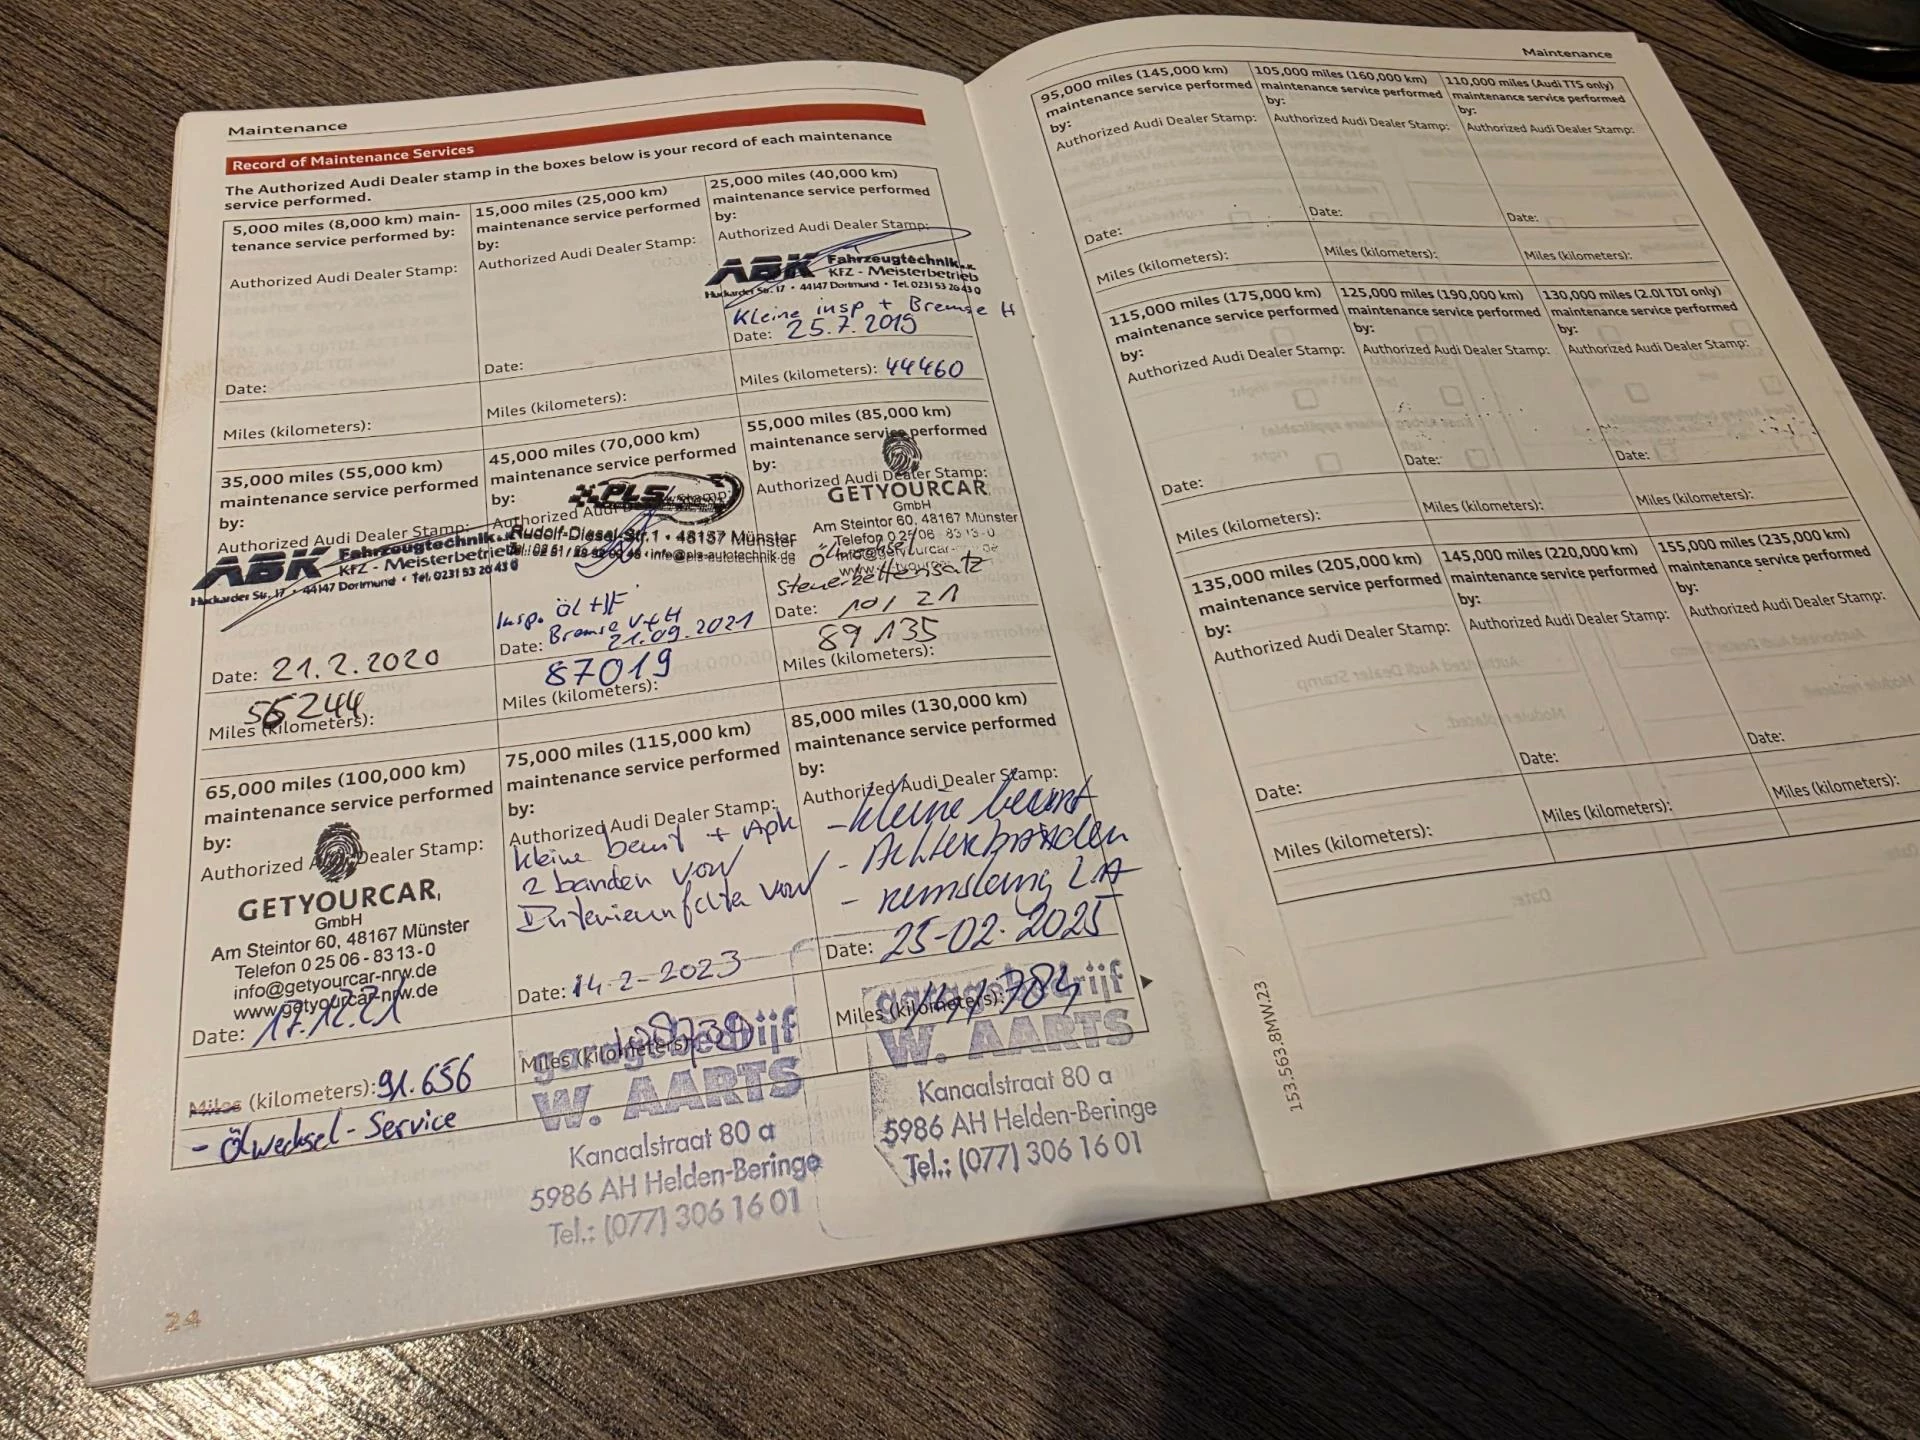 Maintenance
Record of Maintenance Services
The Authorized Audi Dealer stamp in the boxes below is your record of each maintenance
service performed.
5,000 miles (8,000 km) main-
tenance service performed by:
Authorized Audi Dealer Stamp:
Date:
Miles (kilometers):
15,000 miles (25,000 km)
maintenance service performed
by:
Authorized Audi Dealer Stamp:
Date:
Miles (kilometers):
25,000 miles (40,000 km)
maintenance service performed
by:
Authorized Audi Dealer Stamp:
ABK Fahrzeugtechnik e.K.
KFZ - Meisterbetrieb
Huckarder Str. 17 • 44147 Dortmund • Tel. 0231 53 20 43 0
Kleine insp + Bremse H
Date: 25.7.2019
Miles (kilometers): 44460
35,000 miles (55,000 km)
maintenance service performed
by:
Authorized Audi Dealer Stamp:
ABK Fahrzeugtechnik e.K.
KFZ - Meisterbetrieb
Huckarder Str. 17 • 44147 Dortmund • Tel. 0231 53 20 43 0
Date: 21.2.2020
56244
Miles (kilometers):
45,000 miles (70,000 km)
maintenance service performed
by:
Authorized Audi Stamp:
PLS
Rudolf-Diesel-Str.1 • 48157 Münster
info@pls-autotechnik.de
Insp. Öl + IF
Bremse V+H
Date: 21.09.2021
87019
Miles (kilometers):
55,000 miles (85,000 km)
maintenance service performed
by:
Authorized Audi Dealer Stamp:
GETYOURCAR
GmbH
Am Steintor 60, 48167 Münster
Telefon 0 25 06 - 83 13 - 0
Ölwechsel
Steuerkettensatz
Date: 10/21
89 135
Miles (kilometers):
65,000 miles (100,000 km)
maintenance service performed
by:
Authorized Audi Dealer Stamp:
GETYOURCAR
GmbH
Am Steintor 60, 48167 Münster
Telefon 0 25 06 - 83 13 - 0
info@getyourcar-nrw.de
www.getyourcar-nrw.de
Date: 17.12.21
Miles (kilometers): 91.656
- Ölwechsel - Service
75,000 miles (115,000 km)
maintenance service performed
by:
Authorized Audi Dealer Stamp:
kleine beurt + Apk
2 banden voor
Date: 14-2-2023
Miles (kilometers):
garagebedrijf
W. AARTS
Kanaalstraat 80 a
5986 AH Helden-Beringe
Tel.: (077) 306 16 01
85,000 miles (130,000 km)
maintenance service performed
by:
Authorized Audi Dealer Stamp:
- kleine beurt
- Achterbanden
- remslang LA
Date: 25-02-2025
Miles (kilometers): 141784
garagebedrijf
W. AARTS
Kanaalstraat 80 a
5986 AH Helden-Beringe
Tel.: (077) 306 16 01
24
Maintenance
95,000 miles (145,000 km)
maintenance service performed
by:
Authorized Audi Dealer Stamp:
Date:
Miles (kilometers):
105,000 miles (160,000 km)
maintenance service performed
by:
Authorized Audi Dealer Stamp:
Date:
Miles (kilometers):
110,000 miles (Audi TTS only)
maintenance service performed
by:
Authorized Audi Dealer Stamp:
Date:
Miles (kilometers):
115,000 miles (175,000 km)
maintenance service performed
by:
Authorized Audi Dealer Stamp:
Date:
Miles (kilometers):
125,000 miles (190,000 km)
maintenance service performed
by:
Authorized Audi Dealer Stamp:
Date:
Miles (kilometers):
130,000 miles (2.0l TDI only)
maintenance service performed
by:
Authorized Audi Dealer Stamp:
Date:
Miles (kilometers):
135,000 miles (205,000 km)
maintenance service performed
by:
Authorized Audi Dealer Stamp:
Date:
Miles (kilometers):
145,000 miles (220,000 km)
maintenance service performed
by:
Authorized Audi Dealer Stamp:
Date:
Miles (kilometers):
155,000 miles (235,000 km)
maintenance service performed
by:
Authorized Audi Dealer Stamp:
Date:
Miles (kilometers):
153.563.8MW.23